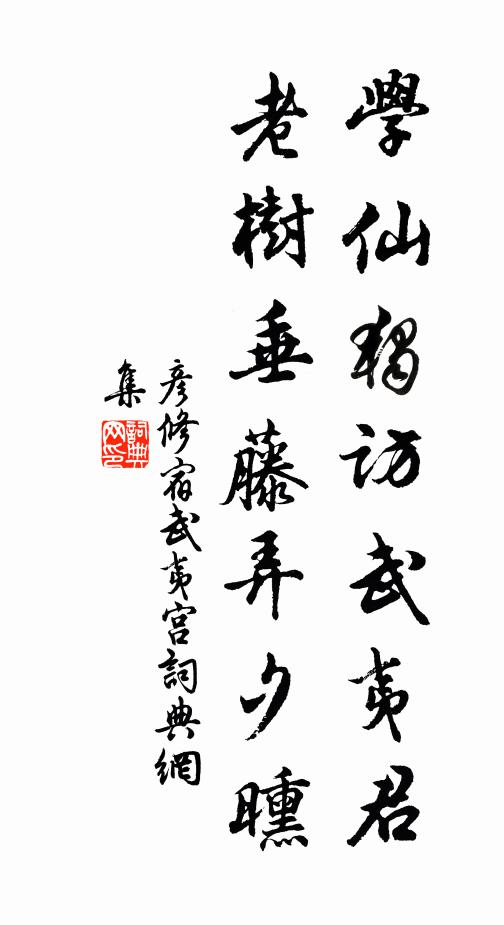 學仙獨訪武夷君
老樹垂藤弄夕曛
彥修宿武夷宮詞典網
集
詞典
网印